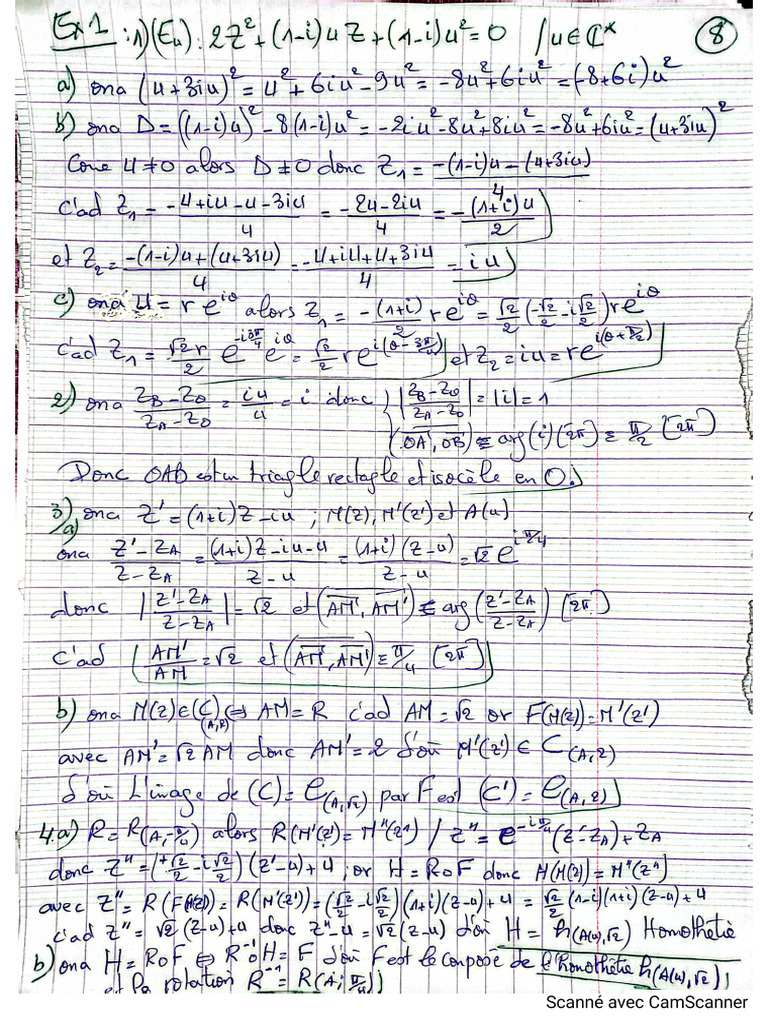 Ex1 : 1) (Eu) : 2Z² + (1-i)uZ + (1-i)u² = 0 / u ∈ ℂ* (8)
a) ona (u+3iu)² = u² + 6iu² - 9u² = -8u² + 6iu² = (-8+6i)u²
b) ona D = ((1-i)u)² - 8(1-i)u² = -2iu² - 8u² + 8iu² = -8u² + 6iu² = (u+3iu)²
Come u ≠ 0 alors D ≠ 0 donc Z₁ = (-(1-i)u - (u+3iu))/4
c'ad Z₁ = (-u+iu-u-3iu)/4 = (-2u-2iu)/4 = -(1+i)u/2
et Z₂ = (-(1-i)u + (u+3iu))/4 = (-u+iu+u+3iu)/4 = iu
c) ona u = re^{iθ} alors Z₁ = -(1+i)/2 re^{iθ} = √2/2 (-√2/2 - i√2/2) re^{iθ}
c'ad Z₁ = √2r/2 e^{-i3π/4} e^{iθ} = √2/2 re^{i(θ-3π/4)} et Z₂ = iu = re^{i(θ+π/2)}
2) ona (Z_B-Z_O)/(Z_A-Z_O) = iu/u = i donc { |(Z_B-Z_O)/(Z_A-Z_O)| = |i| = 1
(OA, OB) ≡ arg(i) [2π] ≡ π/2 [2π]
Donc OAB est un triagle rectagle et isocèle en O.
3) ona Z' = (1+i)Z - iu ; M(Z), M'(Z') et A(u)
a) ona (Z'-Z_A)/(Z-Z_A) = ((1+i)Z-iu-u)/(Z-u) = (1+i)(Z-u)/(Z-u) = √2 e^{iπ/4}
donc |(Z'-Z_A)/(Z-Z_A)| = √2 et (AM, AM') ≡ arg((Z'-Z_A)/(Z-Z_A)) [2π]
c'ad AM'/AM = √2 et (AM, AM') ≡ π/4 [2π]
b) ona M(Z) ∈ (C)(A,R) ⇔ AM = R c'ad AM = √2 or F(M(Z)) = M'(Z')
avec AM' = √2 AM donc AM' = 2 d'où M'(Z') ∈ C(A,2)
d'où L'image de (C) = C(A,√2) par F est (C') = C(A,2)
4.a) R = R(A,-π/4) alors R(M'(Z')) = M''(Z'') / Z'' = e^{-iπ/4}(Z'-Z_A) + Z_A
donc Z'' = (+√2/2 - i√2/2)(Z'-u) + u ; or H = RoF donc H(M(Z)) = M''(Z'')
avec Z'' = R(F(M(Z))) = R(M'(Z')) = (√2/2 - i√2/2)(1+i)(Z-u) + u = √2/2 (1-i)(1+i)(Z-u) + u
c'ad Z'' = √2(Z-u) + u donc Z''-u = √2(Z-u) d'où H = h(A(u),√2) Homothètie
b) ona H = RoF ⇔ R⁻¹oH = F d'où F est le compose de l'homothètie h(A(u),√2)
et la rotation R⁻¹ = R(A; π/4)
Scanné avec CamScanner